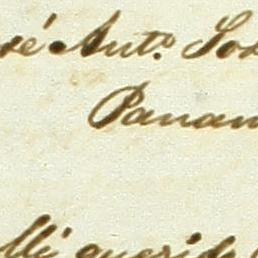 Antº
Panam
Mi querid